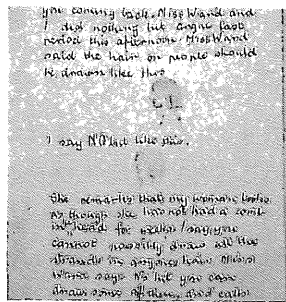 you coming back. Miss Wand and
I did nothing but argue last
period this afternoon. Miss Wand
said the hair on people should
be drawn like this
I say NO but like this.
She remarks that my woman looks
as though she has not had a comb
in her head for weeks I say you
cannot possibly draw all the
strands in anyones hair. Miss
Wand says No but you can
draw some of them, and